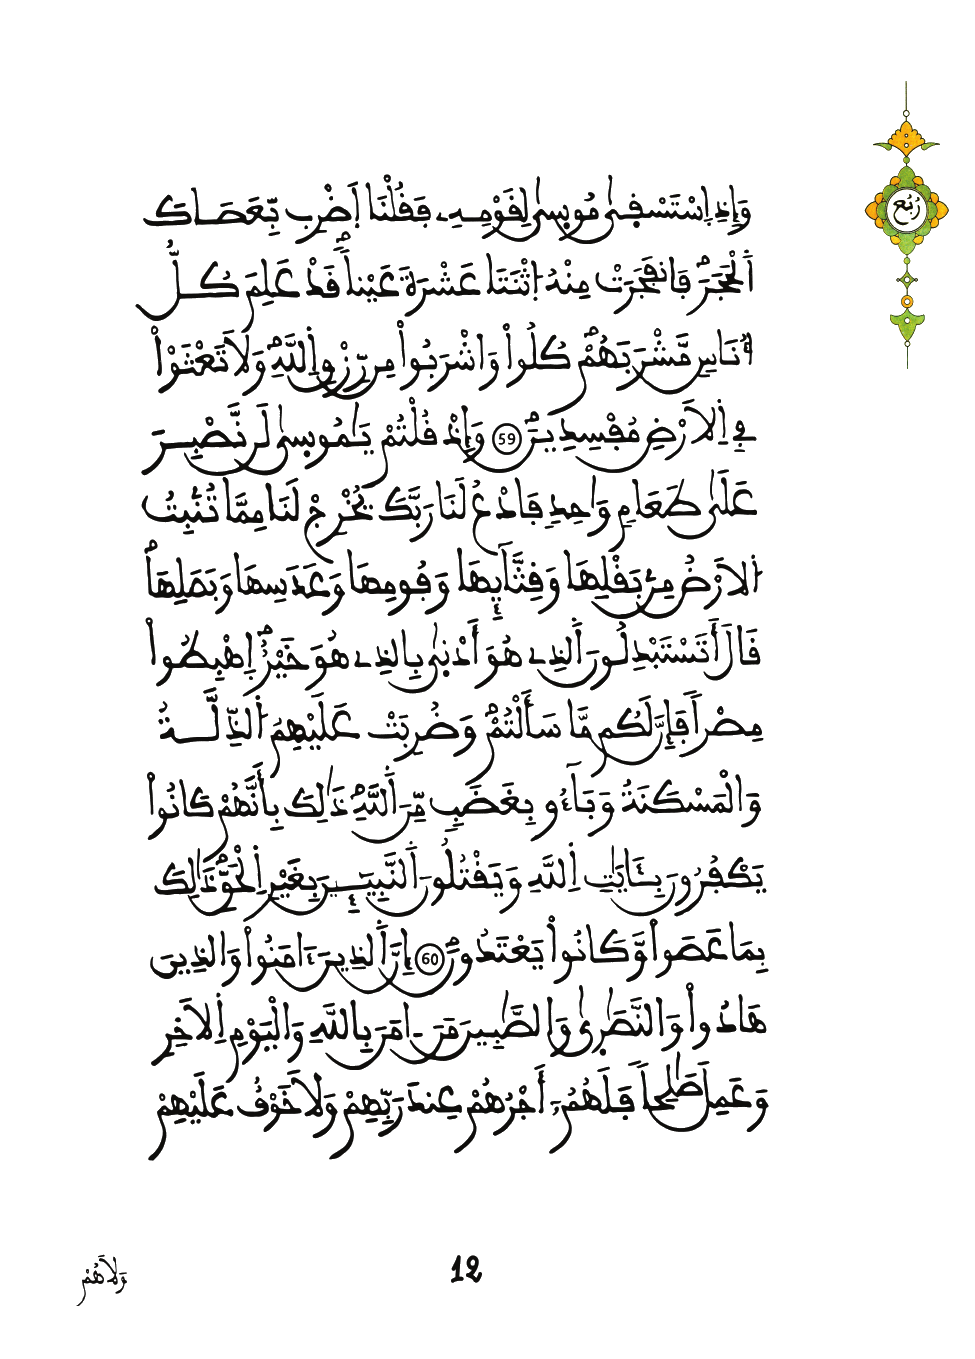 رُبُع
وَإِذِ اِ۪سْتَسْق۪ىٰ مُوس۪ىٰ لِقَوْمِهِۦ فَقُلْنَا اَ۪ضْرِب بِّعَصَاكَ
اَ۬لْحَجَرَۖ فَانفَجَرَتْ مِنْهُ اُ۪ثْنَتَا عَشْرَةَ عَيْناٗۖ قَدْ عَلِمَ كُلُّ
أُنَاسٖ مَّشْرَبَهُمْۖ كُلُواْ وَاشْرَبُواْ مِن رِّزْقِ اِ۬للَّهِۖ وَلَا تَعْثَوْاْ
فِے اِ۬لَارْضِ مُفْسِدِينَۖ 59 وَإِذْ قُلْتُمْ يَٰمُوس۪ىٰ لَن نَّصْبِرَ
عَلَىٰ طَعَامٖ وَٰحِدٖ فَادْعُ لَنَا رَبَّكَ يُخْرِجْ لَنَا مِمَّا تُنۢبِتُ
اُ۬لَارْضُ مِنۢ بَقْلِهَا وَقِثَّآئِهَا وَفُومِهَا وَعَدَسِهَا وَبَصَلِهَاۖ
قَالَ أَتَسْتَبْدِلُونَ اَ۬لذِے هُوَ أَدْن۪ىٰ بِالذِے هُوَ خَيْرٌۖ اِ۪هْبِطُواْ
مِصْراٗ فَإِنَّ لَكُم مَّا سَأَلْتُمْۖ وَضُرِبَتْ عَلَيْهِمُ اُ۬لذِّلَّةُ
وَالْمَسْكَنَةُ وَبَآءُو بِغَضَبٖ مِّنَ اَ۬للَّهِۖ ذَٰلِكَ بِأَنَّهُمْ كَانُواْ
يَكْفُرُونَ بِـَٔايَٰتِ اِ۬للَّهِ وَيَقْتُلُونَ اَ۬لنَّبِيٓـِٕينَ بِغَيْرِ اِ۬لْحَقِّۖ ذَٰلِكَ
بِمَا عَصَواْ وَّكَانُواْ يَعْتَدُونَۖ 60 إِنَّ اَ۬لذِينَ ءَامَنُواْ وَالذِينَ
هَادُواْ وَالنَّصَٰر۪ىٰ وَالصَّٰبِينَ مَنَ اٰمَنَ بِاللَّهِ وَالْيَوْمِ اِ۬لَاخِرِ
وَعَمِلَ صَٰلِحاٗ فَلَهُمُۥٓ أَجْرُهُمْ عِندَ رَبِّهِمْ وَلَا خَوْفٌ عَلَيْهِمْ
وَلَا هُمْ
12